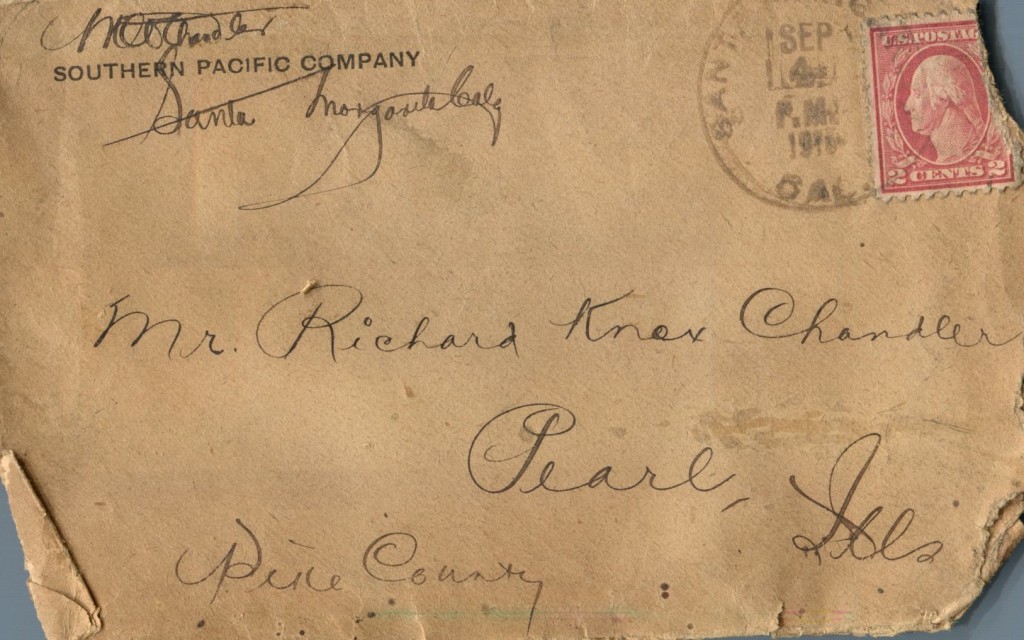 Chandler
SOUTHERN PACIFIC COMPANY
Santa Margarita Calif
SANTA
SEP
4
P.M.
CAL.
U.S. POSTAG
2 CENTS 2
Mr. Richard Knox Chandler
Pearl,
Ills
Pike County